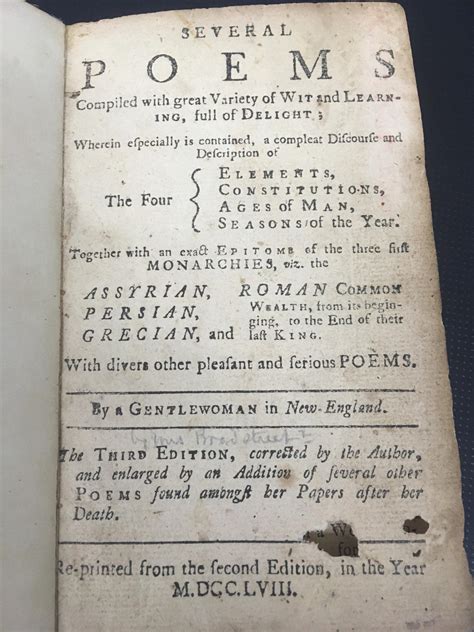 SEVERAL
POEMS
Compiled with great Variety of WIT and LEARN-
ING, full of DELIGHT;
Wherein especially is contained, a compleat Discourse and
Description of
The Four
ELEMENTS,
CONSTITUTIONS,
AGES of MAN,
SEASONS of the Year.
Together with an exact EPITOME of the three first
MONARCHIES, viz. the
ASSYRIAN,
PERSIAN,
GRECIAN, and
ROMAN COMMON
WEALTH, from its begin-
ging, to the End of their
last KING.
With divers other pleasant and serious POEMS.
By a GENTLEWOMAN in New-England.
by Bradstreet
The THIRD EDITION, corrected by the Author,
and enlarged by an Addition of several other
POEMS found amongst her Papers after her
Death.
a W
for
Re-printed from the second Edition, in the Year
M.DCC.LVIII.